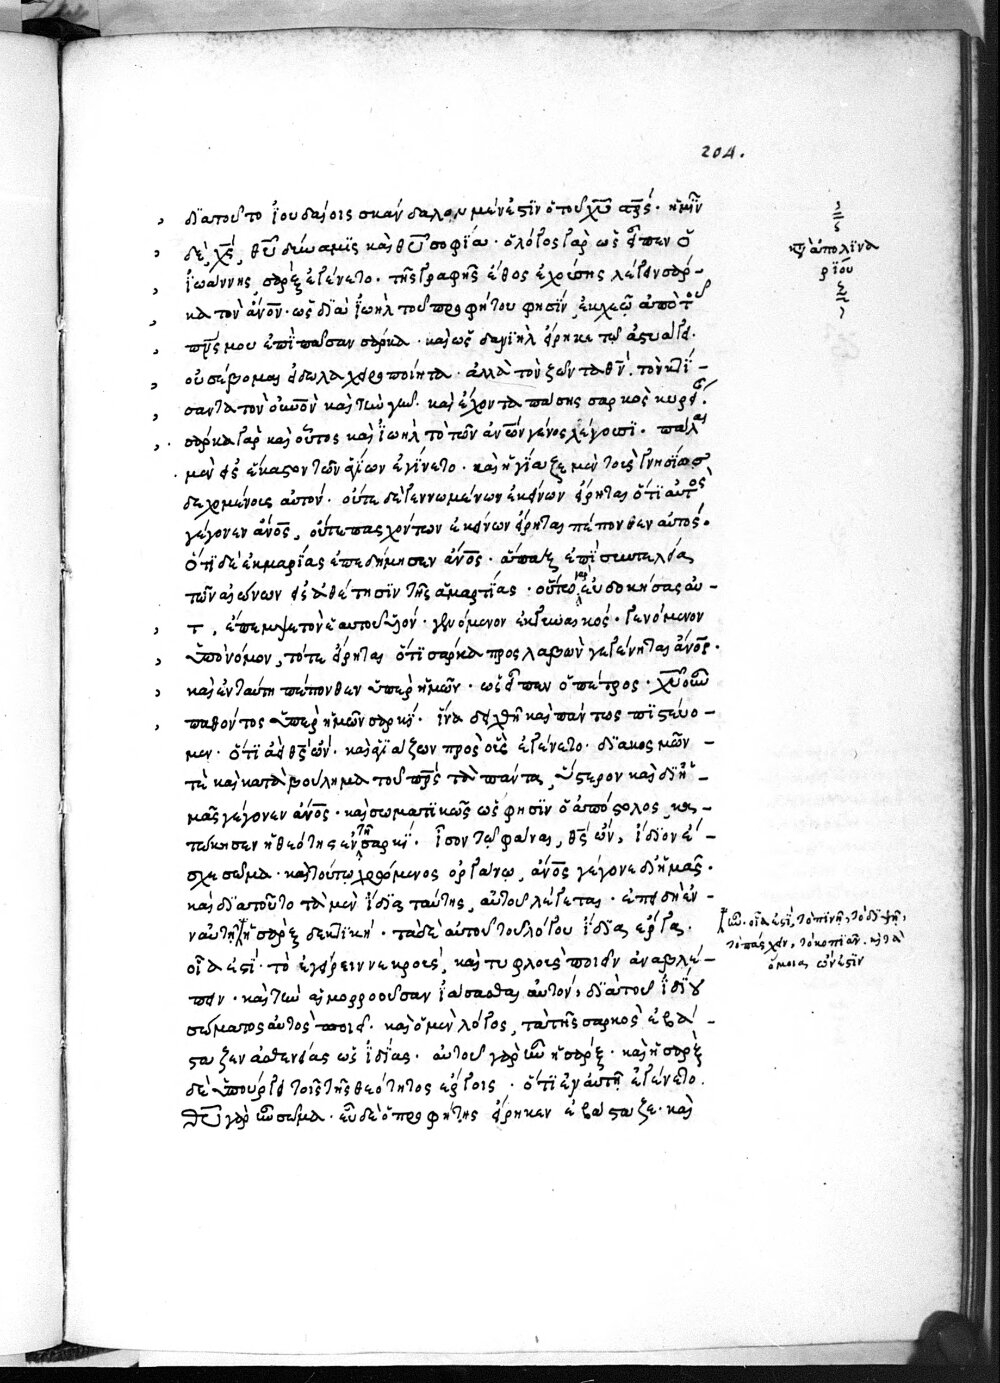 204.
διατοῦτο ἰουδαίοις σκάνδαλον μέν ἐστιν ὁ τοῦ χῦ στς̅· ἡμῖν
δὲ, χς̅, θῦ δύναμις καὶ θῦ σοφία· ὁ λόγος γὰρ ὡς εἶπεν ὁ
ἰωάννης σὰρξ ἐγένετο· τῆς γραφῆς ἔθος ἐχούσης λέγειν σάρ-
κα τὸν ἄνον· ὡς διὰ ἰωὴλ τοῦ προφήτου φησίν, ἐκχεῶ ἀπὸ τοῦ
πνς μου ἐπὶ πᾶσαν σάρκα· καὶ ὡς δανιὴλ εἴρηκε τῷ ἀστυάγει·
οὐ σέβομαι εἴδωλα χειροποίητα· ἀλλὰ τὸν ζῶντα θν̅· τὸν κτί-
σαντα τὸν οὐνον καὶ τὴν γῆν· καὶ ἔχοντα πάσης σαρκὸς κυρεί·
σάρκα γὰρ καὶ οὗτος καὶ ἰωὴλ τὸ τῶν ἀνων γένος λέγουσι· πάλαι
μὲν εἰς ἕκαστον τῶν ἁγίων ἐγίνετο· καὶ ἡγίαζε μὲν τοὺς γνησίως
δεχομένους αὐτόν· οὔτε δὲ γεννωμένων ἐκείνων εἴρηται ὅτι αὐτὸς
γέγονεν ἄνος, οὔτε πασχόντων ἐκείνων εἴρηται πέπονθεν αὐτός·
ὅτι δὲ ἐκ μαρίας ἐπεδήμησεν ἄνος· ἅπαξ ἐπὶ συντελεία
τῶν αἰώνων εἰς ἀθέτησιν τῆς ἁμαρτίας· οὕτω γὰρ εὐδοκήσας αὐ-
τ, ἔπεμψε τὸν ἑαυτοῦ υἱόν· γενόμενον ἐκ γυναικός· γενόμενον
ὑπὸ νόμον, τότε εἴρηται ὅτι σάρκα προσλαβὼν γεγένηται ἄνος·
καὶ ἐν ταύτη πέπονθεν ὑπὲρ ἡμῶν· ὡς εἶπεν ὁ πέτρος· χῦ οὖν
παθόντος ὑπὲρ ἡμῶν σαρκί· ἵνα δειχθῇ καὶ πάντως πιστεύο-
μεν· ὅτι ἀεὶ θς̅ ὤν· καὶ ἁγιάζων πρὸς οὓς ἐγένετο· διακοσμῶν
τὲ καὶ κατὰ βούλημα τοῦ πρς τὰ πάντα, ὕστερον καὶ δι' ἡ-
μᾶς γέγονεν ἄνος· καὶ σωματικῶς ὡς φησὶν ὁ ἀπόστολος, κα-
τώκησεν ἡ θεότης ἐν τῇ σαρκί· ἴσον τῷ φάναι, θς̅ ὤν, ἴδιον ἔ-
σχε σῶμα· καὶ τούτῳ χρώμενος ὀργάνῳ, ἄνος γέγονε δι' ἡμᾶς·
καὶ διατοῦτο τὰ μὲν ἴδια ταύτης, αὐτοῦ λέγεται· ἐπειδὴ ἐν
ν αὐτῇ ἡ σὰρξ δεκτική· τὰ δὲ αὐτοῦ τοῦ λόγου ἴδια ἔργα·
οἷά ἐστι· τὸ ἐγείρειν νεκρούς, καὶ τυφλοὺς ποιεῖν ἀναβλέ-
πειν· καὶ τὴν αἱμορροοῦσαν ἰάσασθαι αὐτόν, διὰ τοῦ ἰδίου
σώματος αὐτὸς ποιεῖ· καὶ ὁ μὲν λόγος, τὰ τῆς σαρκὸς ἐβά-
σταζεν ἀσθενείας ὡς ἰδίας· αὐτοῦ γὰρ ἦν ἡ σὰρξ· καὶ ἡ σὰρξ
δὲ ὑπούργει τοῖς τῆς θεότητος ἔργοις· ὅτι ἐν αὐτῇ ἐγένετο·
θῦ γὰρ ἦν σῶμα· εὖ δὲ ὁ προφήτης εἴρηκεν ἐβάσταζε· καὶ
κτ̀ ἀπολινα
ρίου
ἦν· οἷά ἐστι, τὸ πεινῆν, τὸ διψῆν,
τὸ πάσχειν, τὸ κοπιᾶν· κὶ τὰ
ὅμοια ὧν ἐστιν